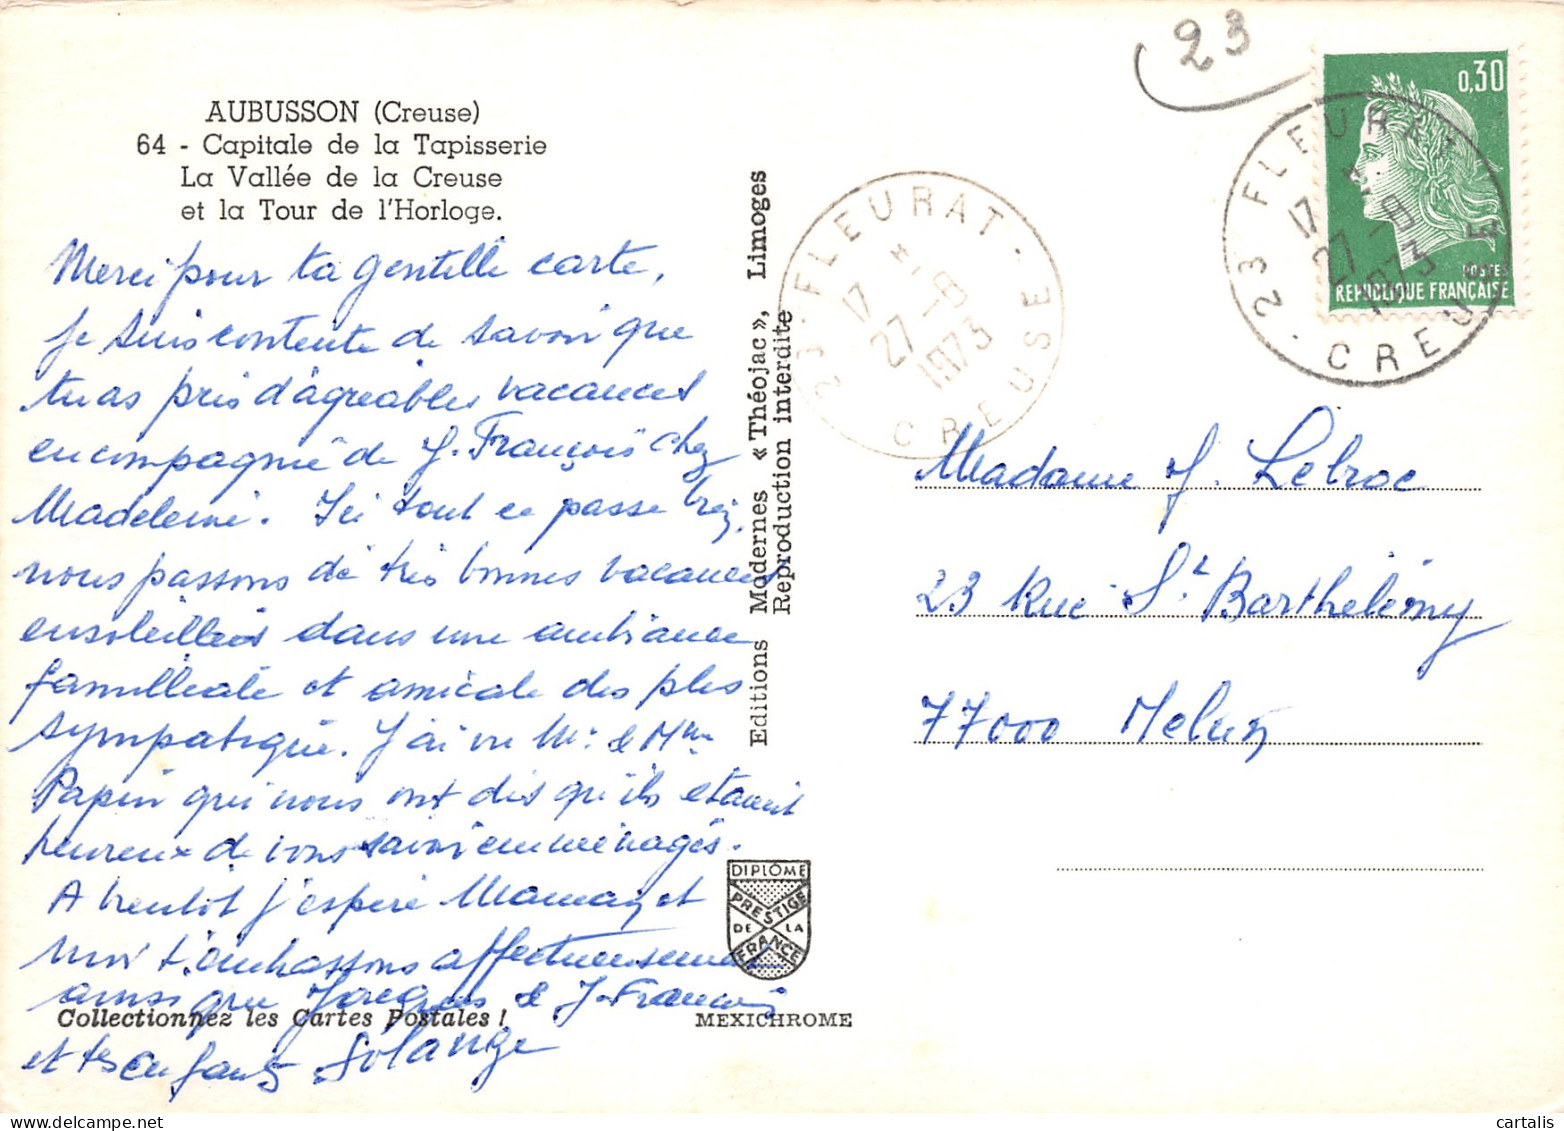 23
AUBUSSON (Creuse)
64 - Capitale de la Tapisserie
La Vallée de la Creuse
et la Tour de l'Horloge.
Merci pour ta gentille carte,
je suis contente de savoir que
tu as pris d'agréables vacances
en compagnie de J. François chez
Madeleine. Ici tout se passe bien,
nous passons de très bonnes vacances
ensoleillées dans une ambiance
familleale et amicale des plus
sympatique. J'ai vu Mr. et Mme
Papin qui nous ont dis qu'ils etaient
heureux de vous savoir emménagés.
A bientôt j'espère Maman et
moi t'embrassons affectueusement
ainsi que Jacques et J. François
et tes enfants Solange
Collectionnez les Cartes Postales !
MEXICHROME
DIPLÔME
PRESTIGE
DE LA
FRANCE
Editions Modernes « Théojac », Limoges
Reproduction interdite
23 - FLEURAT - CREUSE
17
27 -8
1973
0,30
POSTES
REPUBLIQUE FRANÇAISE
23 - FLEURAT
CREUSE
17
27 -8
1973
Madame J. Lebrac
23 Rue St Barthélémy
77000 Melun
cartalis